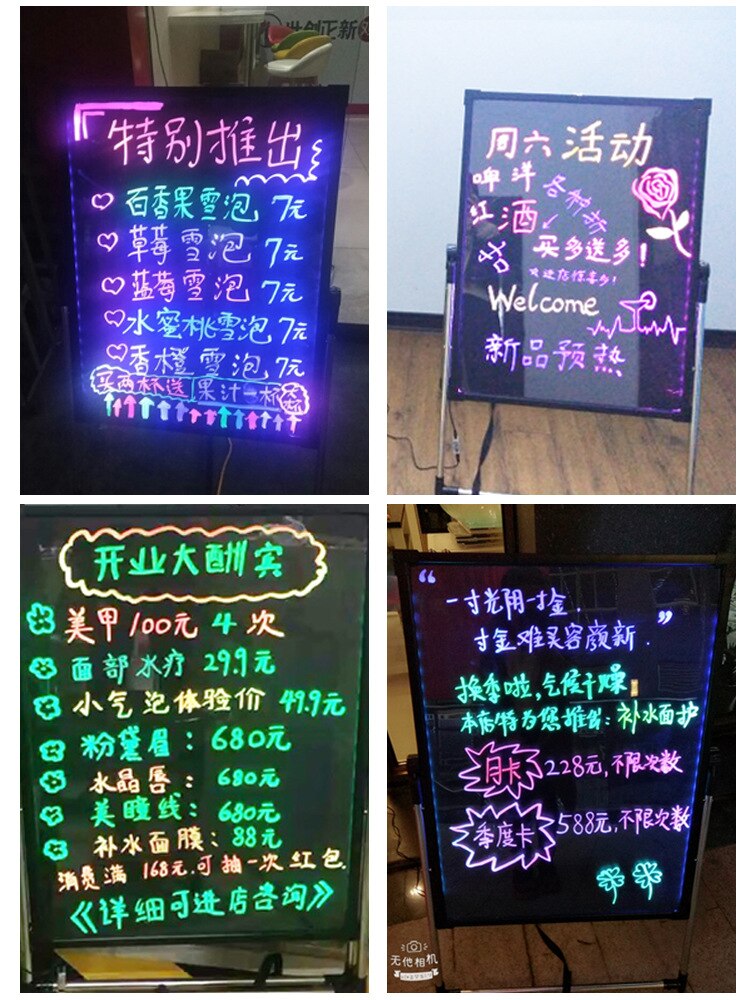 世创正新
特别推出
百香果雪泡 7元
草莓雪泡 7元
蓝莓雪泡 7元
水蜜桃雪泡 7元
香橙雪泡 7元
买两杯送果汁一杯
周六活动
啤洋
红酒
各种折
买多送多!
Welcome
新品预热
开业大酬宾
美甲100元 4次
面部水疗 29.9元
小气泡体验价 49.9元
粉黛眉:680元
水晶唇:680元
美瞳线:680元
补水面膜:88元
消费满168元.可抽一次红包.
《详细可进店咨询》
“一寸光阴一寸金.
寸金难买容颜新.”
换季啦,气候干燥
本店特为您推出:补水面护
月卡 228元,不限次数
季度卡 588元,不限次数
无他相机